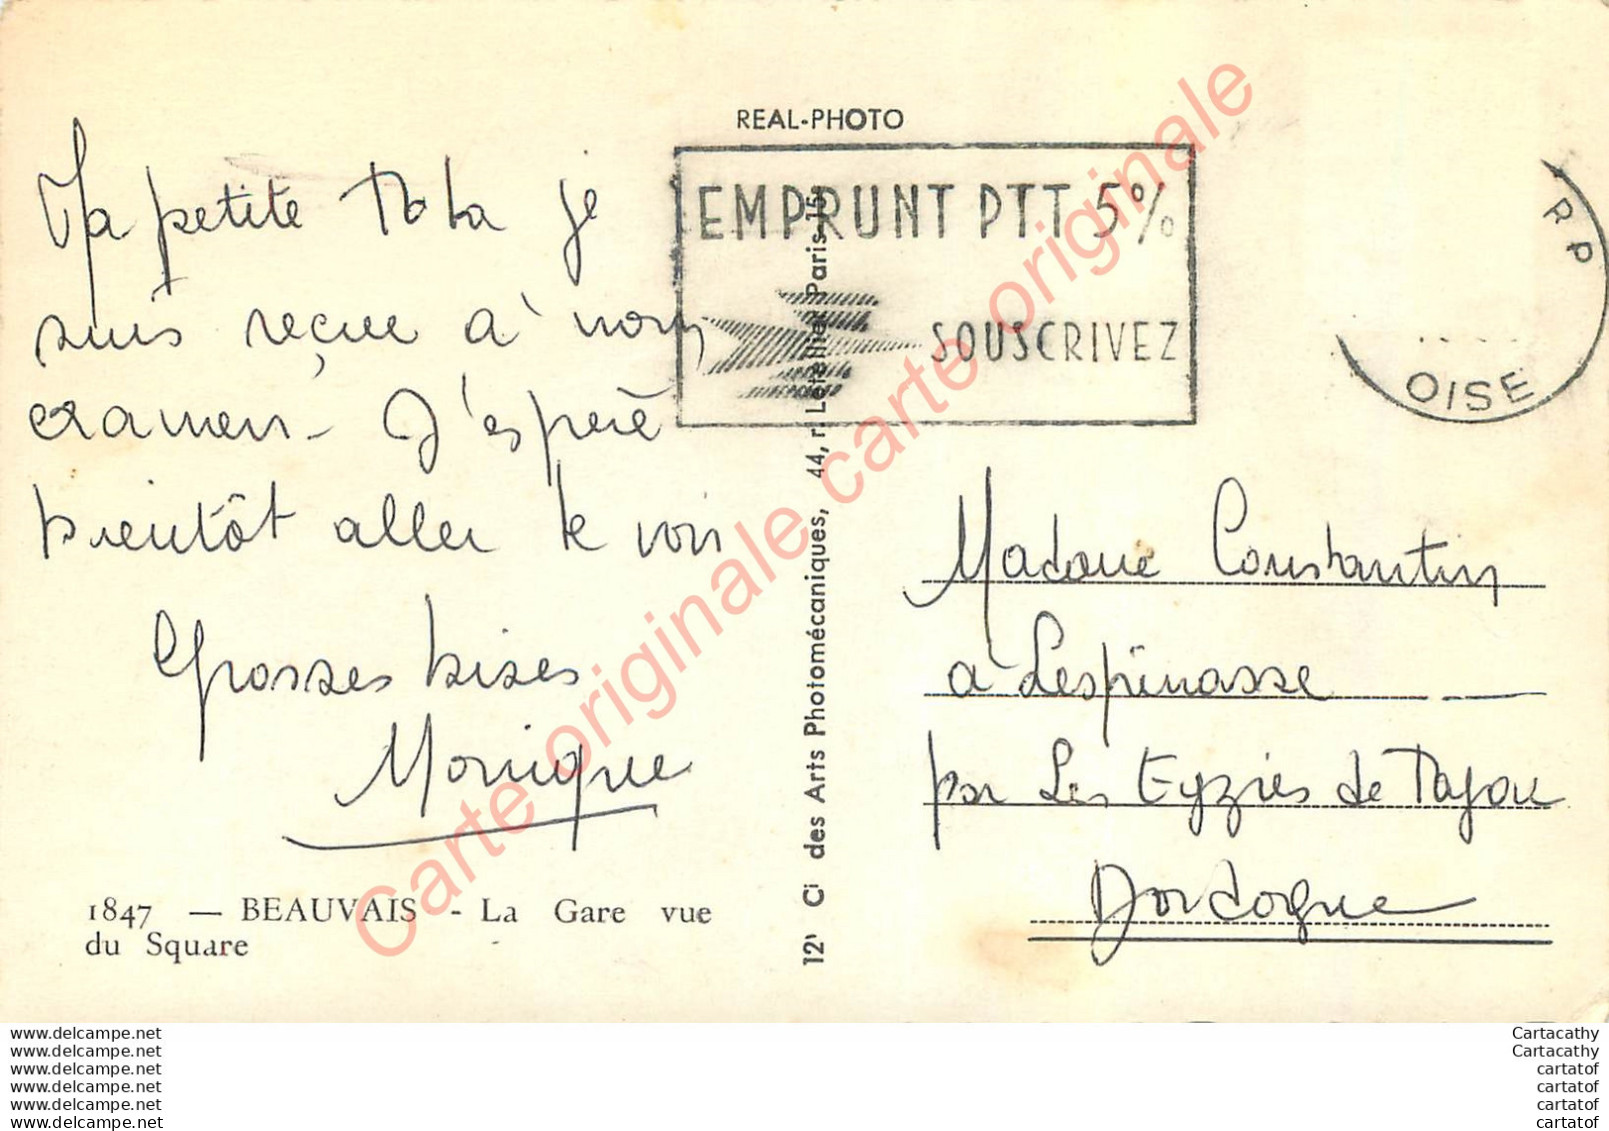 REAL-PHOTO
EMPRUNT PTT 5%
SOUSCRIVEZ
RP
OISE
Ma petite je
suis reçue à mon
examen - J'espère
bientôt aller te voir
Grosses bises
Monique
1847 — BEAUVAIS - La Gare vue
du Square
Cie des Arts Photomécaniques, 44, r. Letellier Paris-15e
Madame Constantin
à Lespinasse
par Les Eyzies de Tayac
Dordogne
Carte originale carte originale
www.delcampe.net
www.delcampe.net
www.delcampe.net
www.delcampe.net
www.delcampe.net
www.delcampe.net
Cartacathy
Cartacathy
cartatof
cartatof
cartatof
cartatof